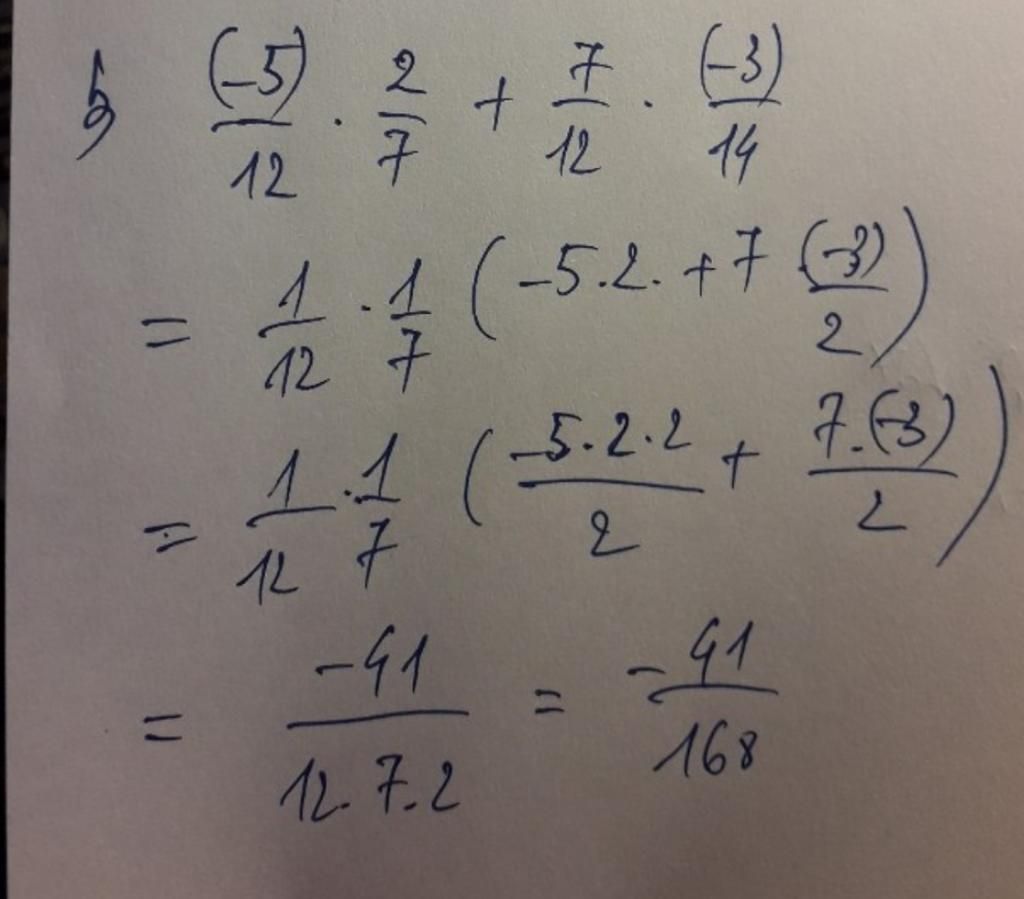 b) (-5)/12 . 2/7 + 7/12 . (-3)/14
= 1/12 . 1/7 ( -5.2. + 7 . (-3)/2 )
= 1/12 . 1/7 ( -5.2.2/2 + 7.(-3)/2 )
= -41/12.7.2 = -41/168